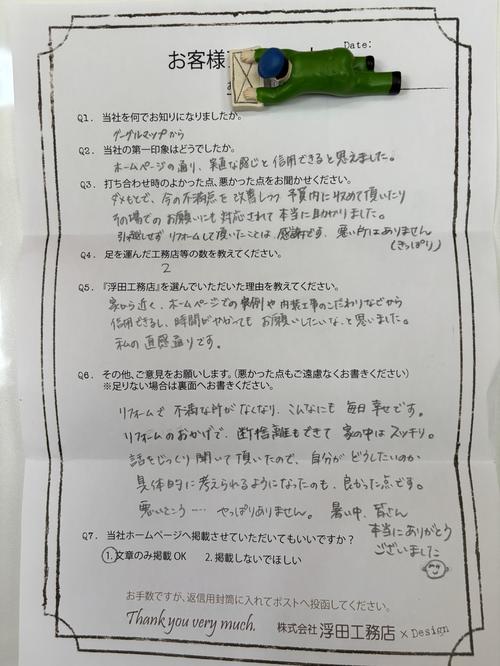 お客様
Date:
Q1. 当社を何でお知りになりましたか。
グーグルマップから
Q2. 当社の第一印象はどうでしたか。
ホームページの通り、実直な感じと信用できると思えました。
Q3. 打ち合わせ時のよかった点、悪かった点をお聞かせください。
ダメもとで、今の不満点を改善しつつ予算内に収めて頂いたり
その場でのお願いにも対応されて本当に助かりました。
引っ越しせずリフォームして頂いたことは、感謝です。悪い所はありません
(きっぱり)
Q4. 足を運んだ工務店等の数を教えてください。
2
Q5. 『浮田工務店』を選んでいただいた理由を教えてください。
家から近く、ホームページでの実例や内装工事のこだわりなどから
信用できるし、時間がかかってもお願いしたいな、と思いました。
私の直感通りです。
Q6. その他、ご意見をお願いします。(悪かった点もご遠慮なくお書きください)
※足りない場合は裏面へお書きください。
リフォームで不満な所がなくなり、こんなにも毎日幸せです。
リフォームのおかげで、断捨離もできて家の中はスッキリ。
話をじっくり聞いて頂いたので、自分がどうしたいのか
具体的に考えられるようになったのも、良かった点です。
悪いところ…やっぱりありません。暑い中、皆さん
本当にありがとう
ございました
Q7. 当社ホームページへ掲載させていただいてもいいですか?
1.文章のみ掲載OK 2.掲載しないでほしい
お手数ですが、返信用封筒に入れてポストへ投函してください。
Thank you very much. 株式会社 浮田工務店 × Design